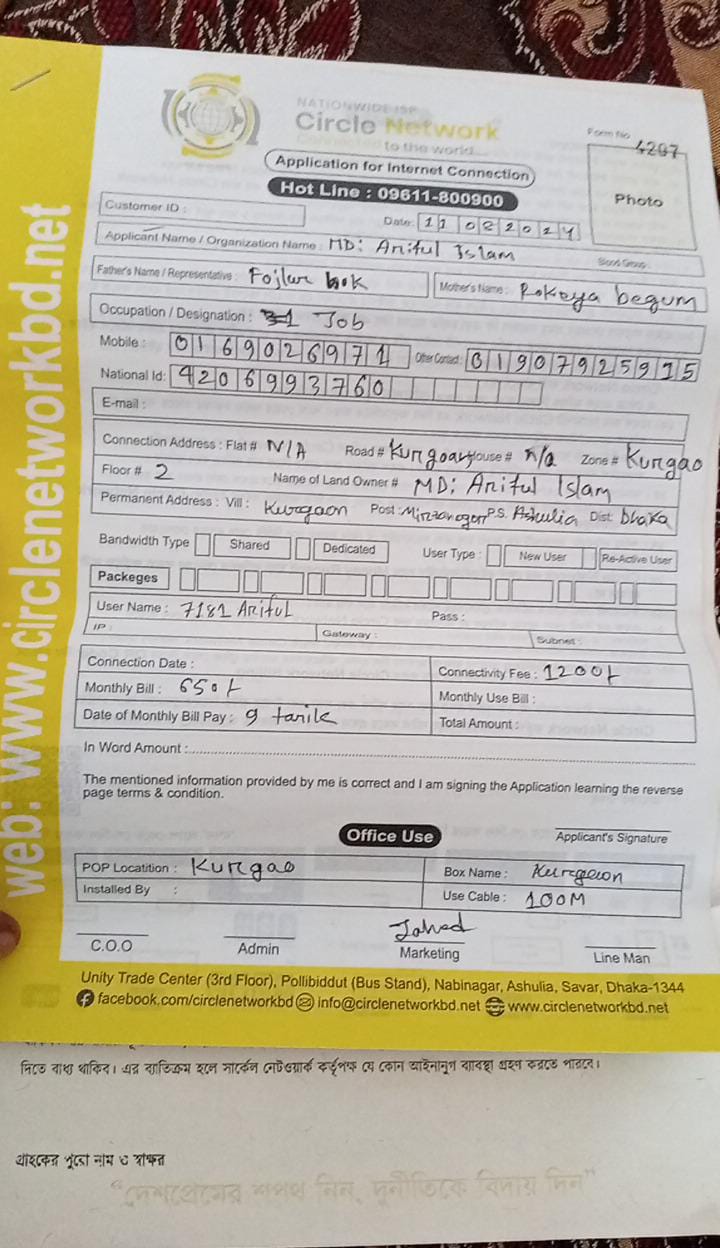 NATIONWIDE ISP
Circle Network
Connected to the world...
Form No
4297
Application for Internet Connection
Hot Line : 09611-800900
Photo
Customer ID :
Date: 11 08 2024
Applicant Name / Organization Name : MD: Ariful Islam
Blood Group :
Father's Name / Representative : Fojlur hok
Mother's Name : Rokeya begum
Occupation / Designation : Job
Mobile : 0169026971 Other Contact : 01907925915
National Id: 4206993760
E-mail :
Connection Address : Flat # N/A Road # Kurgoan House # n/a Zone # Kurgao
Floor # 2 Name of Land Owner # MD: Ariful Islam
Permanent Address : Vill : Kurgaon Post : Mirzanagor P.S. Ashulia Dist: Dhaka
Bandwidth Type Shared Dedicated User Type : New User Re-Active User
Packeges
User Name : 7181 Ariful Pass :
IP : Gateway : Subnet :
Connection Date : Connectivity Fee : 1200/-
Monthly Bill : 650/- Monthly Use Bill :
Date of Monthly Bill Pay : 9 tarik Total Amount :
In Word Amount :
The mentioned information provided by me is correct and I am signing the Application learning the reverse
page terms & condition.
Office Use
Applicant's Signature
POP Locatition : Kurgao Box Name : Kurgaon
Installed By : Use Cable : 100M
Jahed
C.O.O Admin Marketing Line Man
Unity Trade Center (3rd Floor), Pollibiddut (Bus Stand), Nabinagar, Ashulia, Savar, Dhaka-1344
facebook.com/circlenetworkbd info@circlenetworkbd.net www.circlenetworkbd.net
web: www.circlenetworkbd.net
দিতে বাধ্য থাকিব। এর ব্যতিক্রম হলে সার্কেল নেটওয়ার্ক কর্তৃপক্ষ যে কোন আইনানুগ ব্যবস্থা গ্রহণ করতে পারবে।
গ্রাহকের পুরো নাম ও স্বাক্ষর
“দেশপ্রেমের শপথ নিন, দুর্নীতিকে বিদায় দিন”